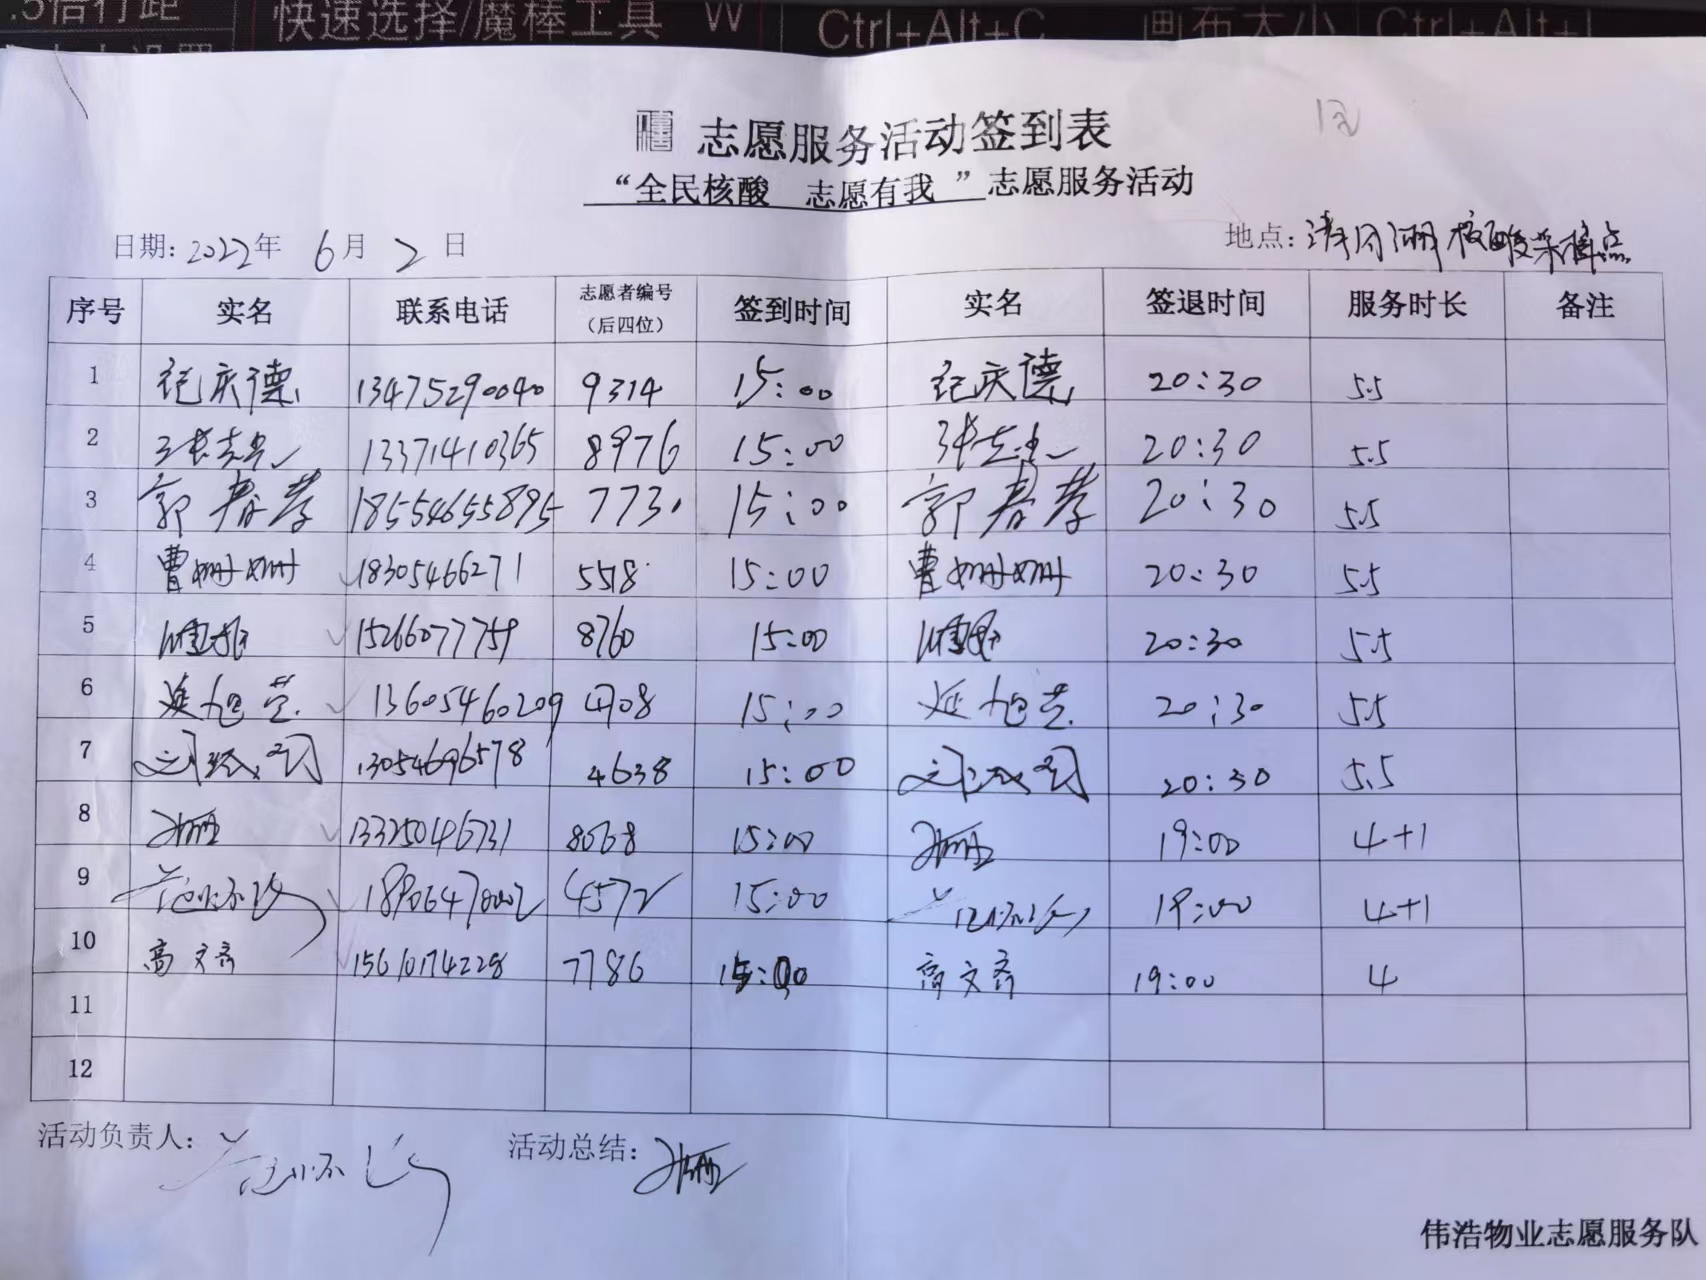 快速选择/魔棒工具 W Ctrl+Alt+C 画布大小 Ctrl+Alt+I
志愿服务活动签到表
“全民核酸 志愿有我”志愿服务活动
日期:2022年 6月 2日 地点: 核酸采样点
序号 实名 联系电话 志愿者编号(后四位) 签到时间 实名 签退时间 服务时长 备注
1 纪庆德 13475290040 9314 15:00 纪庆德 20:30 5.5
2 13371410365 8976 15:00 20:30 5.5
3 郭春 18554655895 7730 15:00 郭春 20:30 5.5
4 曹姗姗 18305466271 5518 15:00 曹姗姗 20:30 5.5
5 15266077759 8760 15:00 20:30 5.5
6 延旭芝 13605460209 4708 15:00 延旭芝 20:30 5.5
7 13054696578 4638 15:00 20:30 5.5
8 13325046731 8068 15:00 19:00 4+1
9 18906470002 4572 15:00 19:00 4+1
10 高文斋 15610174228 7786 15:00 高文斋 19:00 4
11
12
活动负责人: 活动总结:
伟浩物业志愿服务队